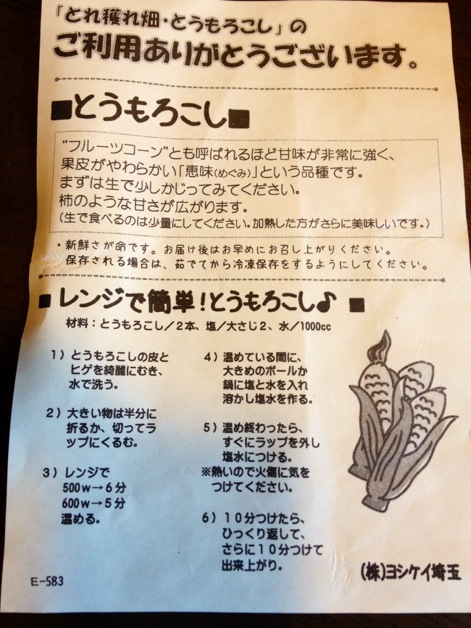 「とれ獲れ畑・とうもろこし」の
ご利用ありがとうございます。
■とうもろこし■
“フルーツコーン”とも呼ばれるほど甘味が非常に強く、
果皮がやわらかい「恵味(めぐみ)」という品種です。
まずは生で少しかじってみてください。
柿のような甘さが広がります。
(生で食べるのは少量にしてください。加熱した方がさらに美味しいです。)
・新鮮さが命です。お届け後はお早めにお召し上がりください。
保存される場合は、茹でてから冷凍保存をするようにしてください。
■レンジで簡単!とうもろこし♪■
材料:とうもろこし/2本、塩/大さじ2、水/1000cc
1)とうもろこしの皮と
ヒゲを綺麗にむき、
水で洗う。
2)大きい物は半分に
折るか、切ってラ
ップにくるむ。
3)レンジで
500w→6分
600w→5分
温める。
4)温めている間に、
大きめのボールか
鍋に塩と水を入れ
溶かし塩水を作る。
5)温め終わったら、
すぐにラップを外し
塩水につける。
※熱いので火傷に気を
つけてください。
6)10分つけたら、
ひっくり返して、
さらに10分つけて
出来上がり。
E-583
(株)ヨシケイ埼玉